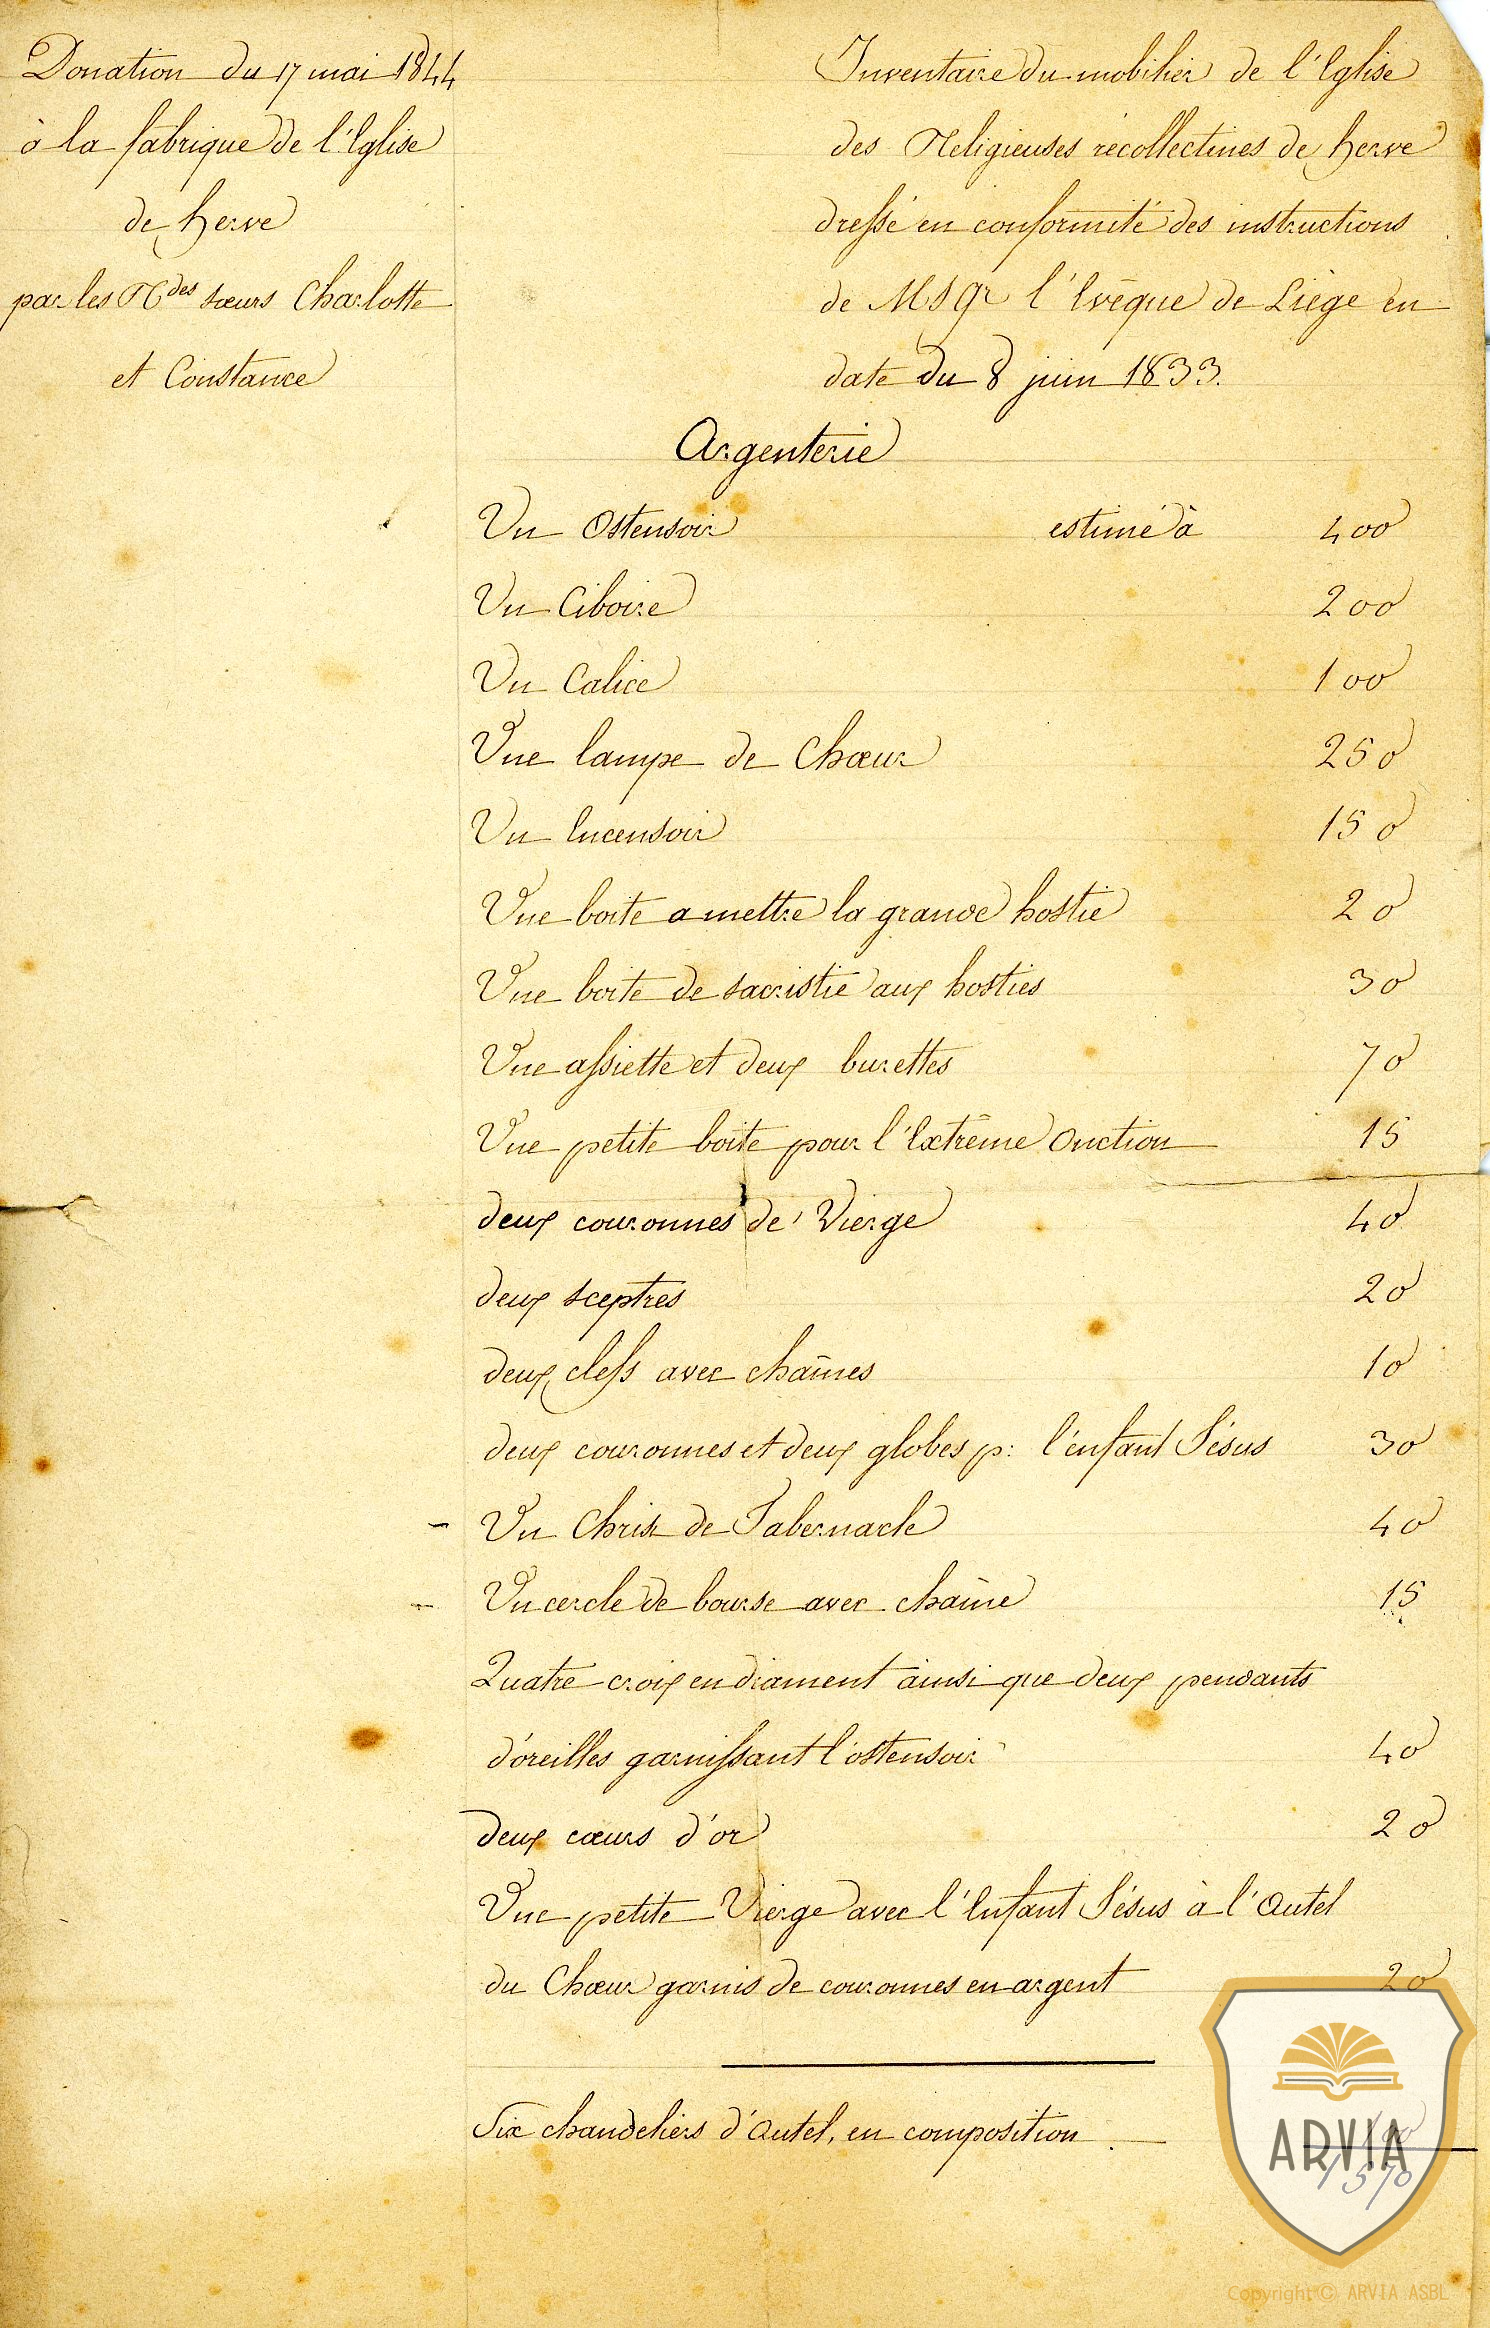 Donation du 17 mai 1844
à la fabrique de l'Eglise
de herve
par les Rdes sœurs Charlotte
et Constance
Inventaire du mobilier de l'Eglise
des Religieuses récollectines de herve
dressé en conformité des instructions
de Msgr l'Evêque de Liège en
date du 8 juin 1833.
Argenterie
Un Ostensoir estimé à 400
Un Ciboire 200
Un Calice 100
Une lampe de Chœur 250
Un Encensoir 150
Une boite a mettre la grande hostie 20
Une boite de sacristie aux hosties 30
Une assiette et deux burettes 70
Une petite boite pour l'Extrême Onction 15
deux couronnes de Vierge 40
deux sceptres 20
deux clefs avec chaînes 10
deux couronnes et deux globes p: l'enfant Jésus 30
Un Christ de Tabernacle 40
Un cercle de bourse avec chaîne 15
Quatre croix en diament ainsi que deux pendants
d'oreilles garnissant l'ostensoir 40
deux cœurs d'or 20
Une petite Vierge avec l'Enfant Jésus à l'Autel
du Chœur garnis de couronnes en argent 20
Six chandeliers d'Autel, en composition 100
1570
ARVIA
Copyright © ARVIA ASBL